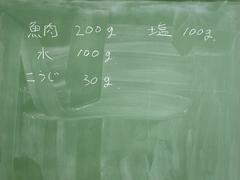 魚肉 200g 塩 100g
水 100g
こうじ 30g